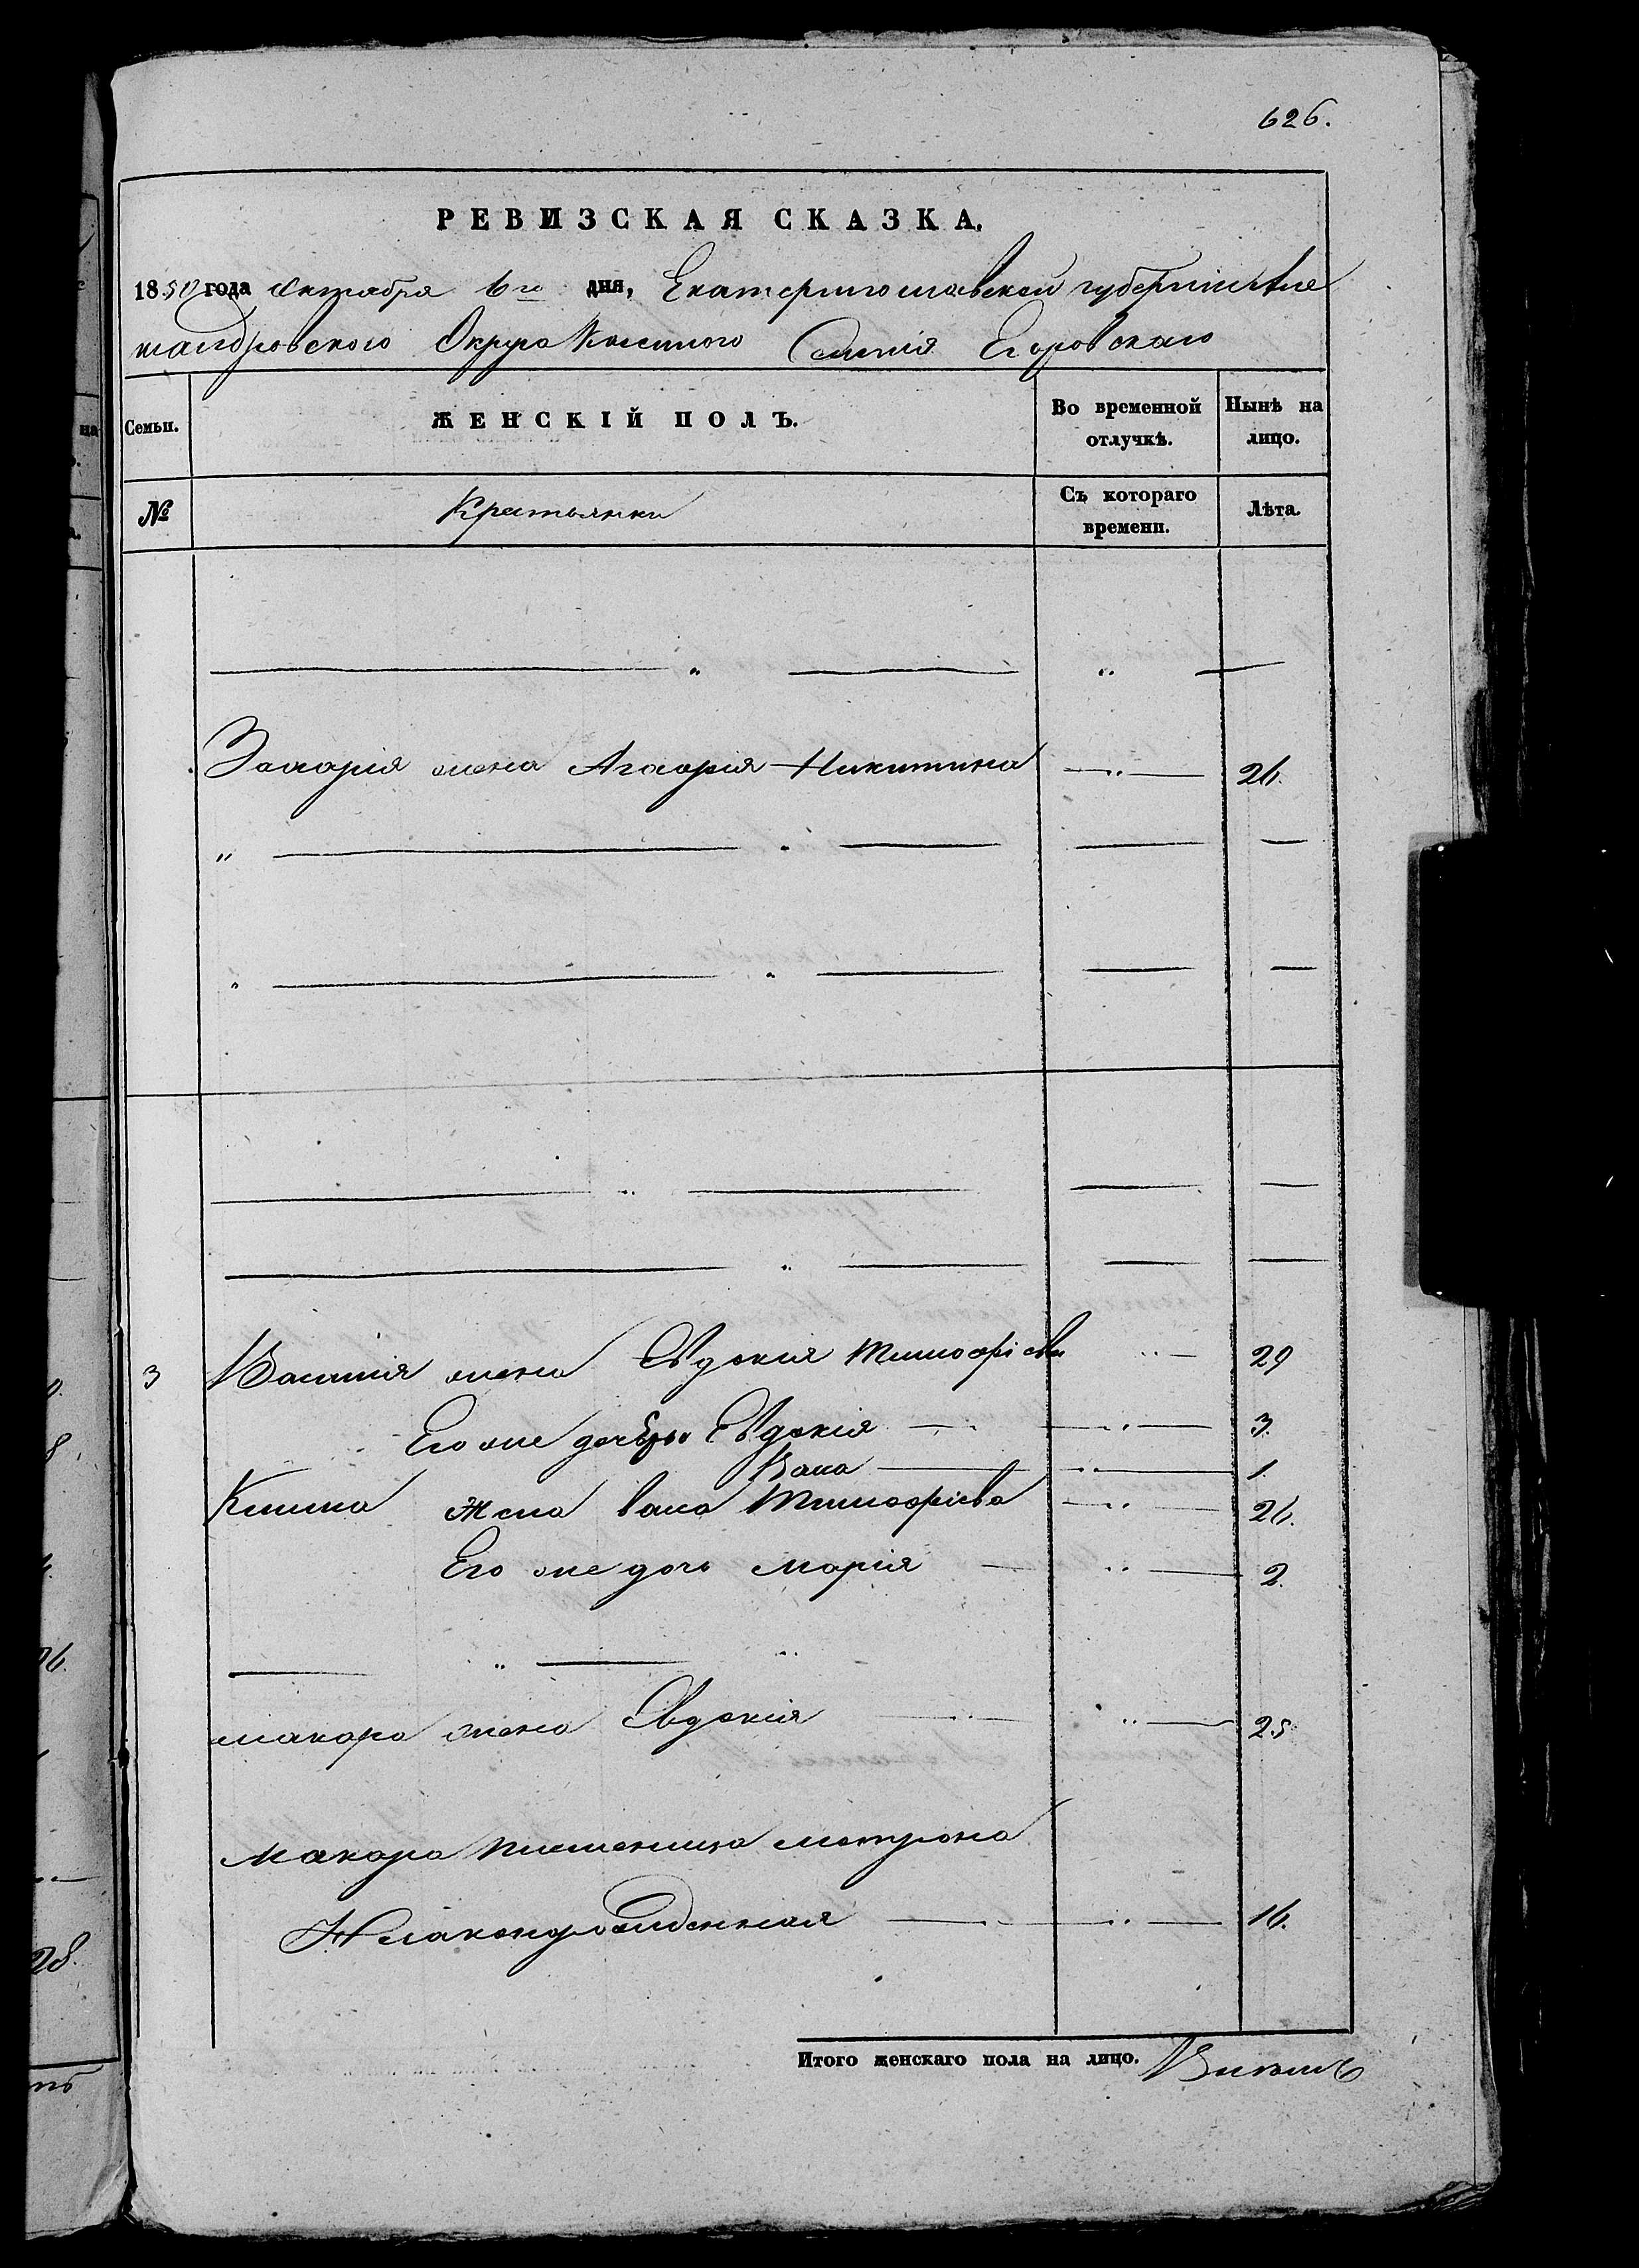 626.
РЕВИЗСКАЯ СКАЗКА.
1850 года Октября 6го дня, Екатеринославской губерніи Але
ксандровского Округа Казенного Селенія Егоровскаго
Семьи. ЖЕНСКІЙ ПОЛЪ. Во временной отлучкѣ. Нынѣ на лицо.
№ Крестьянки Съ котораго времени. Лѣта.
Захарія жена Агафія Никитина 26.
3 Василія жена Евдокія Тимофіева 29
Его же дочери Евдокія 3.
1.
Клима Жена Тимофіева 26.
Его же дочь Марія 2.
Макара жена Евдокія 25
Макара племеница Матрона
Незаконорожденная 16.
Итого женскаго пола на лицо.
28.